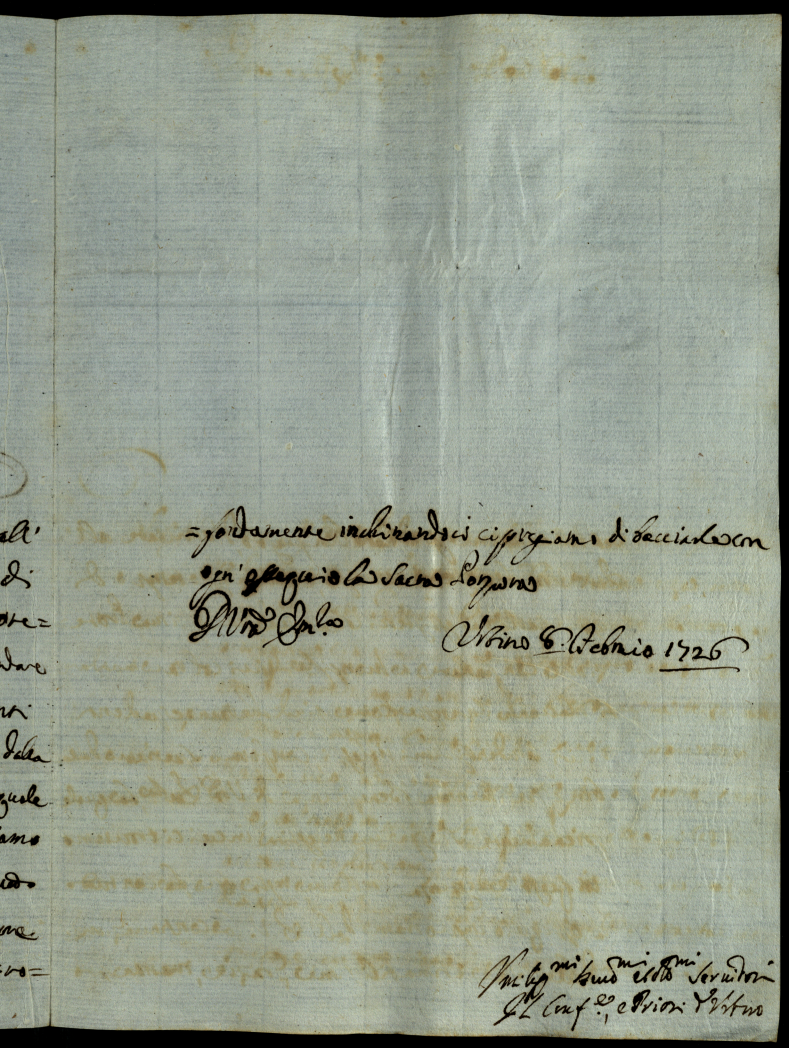 all'
di
dare
dalla
quale
=fondamente inchinandoci ci pregiamo di bacciarle con
ogn' ossequio la Sacra Porpora
D. V.ra Em.za
Urbino 8. Febraio 1726
Umilis.mi devo.mi ed obb.mi Servidori
Il Conf.re, e Priori d'Urbino